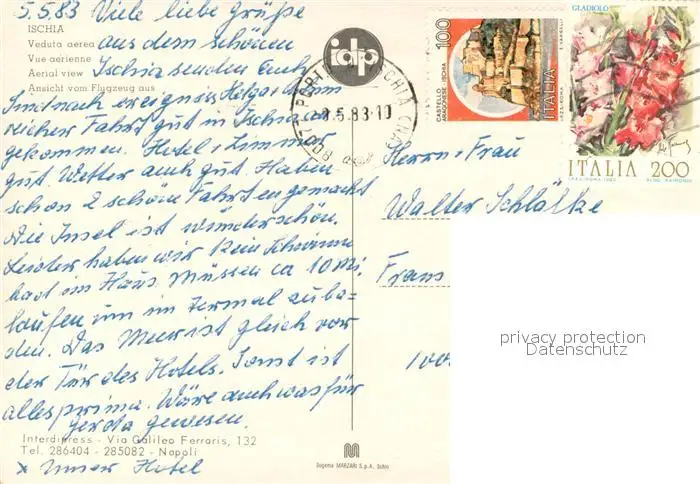 5.5.83 Viele liebe Grüße
ISCHIA
Veduta aerea
Vue aérienne
Aerial view
Ansicht vom Flugzeug aus
aus dem schönen
Ischia senden Euch
Sind nach ereignis
reicher Fahrt gut in Ischia an
gekommen. Hotel u. Zimmer
gut. Wetter auch gut. Haben
schon 2 schöne Fahrten gemacht
Die Insel ist wunderschön.
Leider haben wir kein Schwimm
bad im Haus. Müssen ca 10 Mi.
laufen um im Termal zu ba-
den. Das Meer ist gleich vor
der Tür des Hotels. Sonst ist
alles prima. Wäre auch was für
Gerda gewesen.
Interdipress - Via Galileo Ferraris, 132
Tel. 286404 - 285082 - Napoli
x Unser Hotel
idp
8.5.83-10
100
CASTELLO
ARAGONESE · ISCHIA
ITALIA
GLADIOLO
ITALIA 200
Herrn u. Frau
Walter Schlätke
Frans
1000
privacy protection
Datenschutz
Eugenio MARZARI S.p.A. Schio